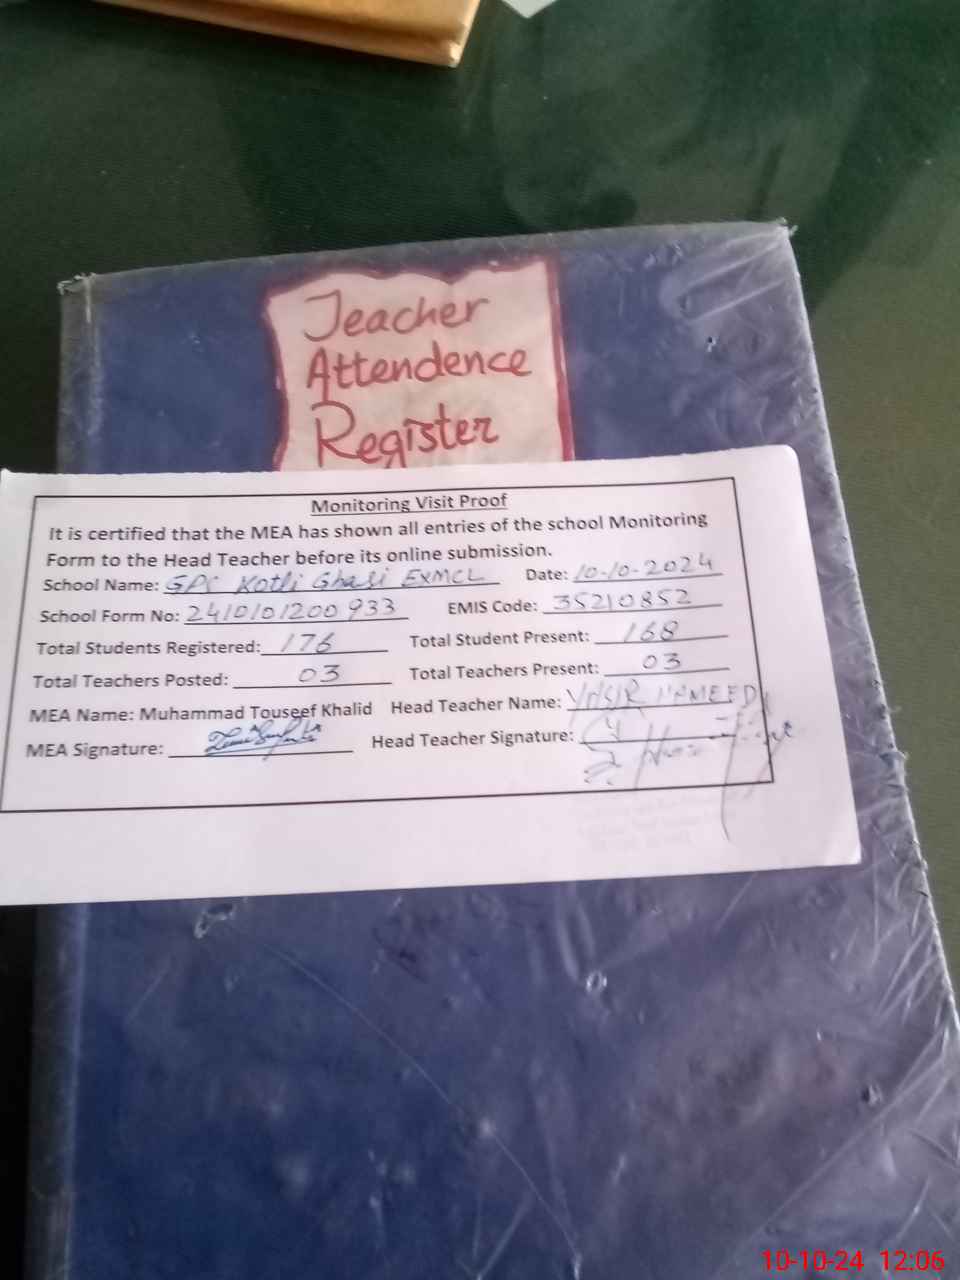 Teacher
Attendence
Register
Monitoring Visit Proof
It is certified that the MEA has shown all entries of the school Monitoring
Form to the Head Teacher before its online submission.
School Name: GPS Kotli Ghasi EXMCL Date: 10-10-2024
School Form No: 2410101200933 EMIS Code: 35210852
Total Students Registered: 176 Total Student Present: 168
Total Teachers Posted: 03 Total Teachers Present: 03
MEA Name: Muhammad Touseef Khalid Head Teacher Name: YASIR HAMEED
MEA Signature: Head Teacher Signature:
10-10-24 12:06